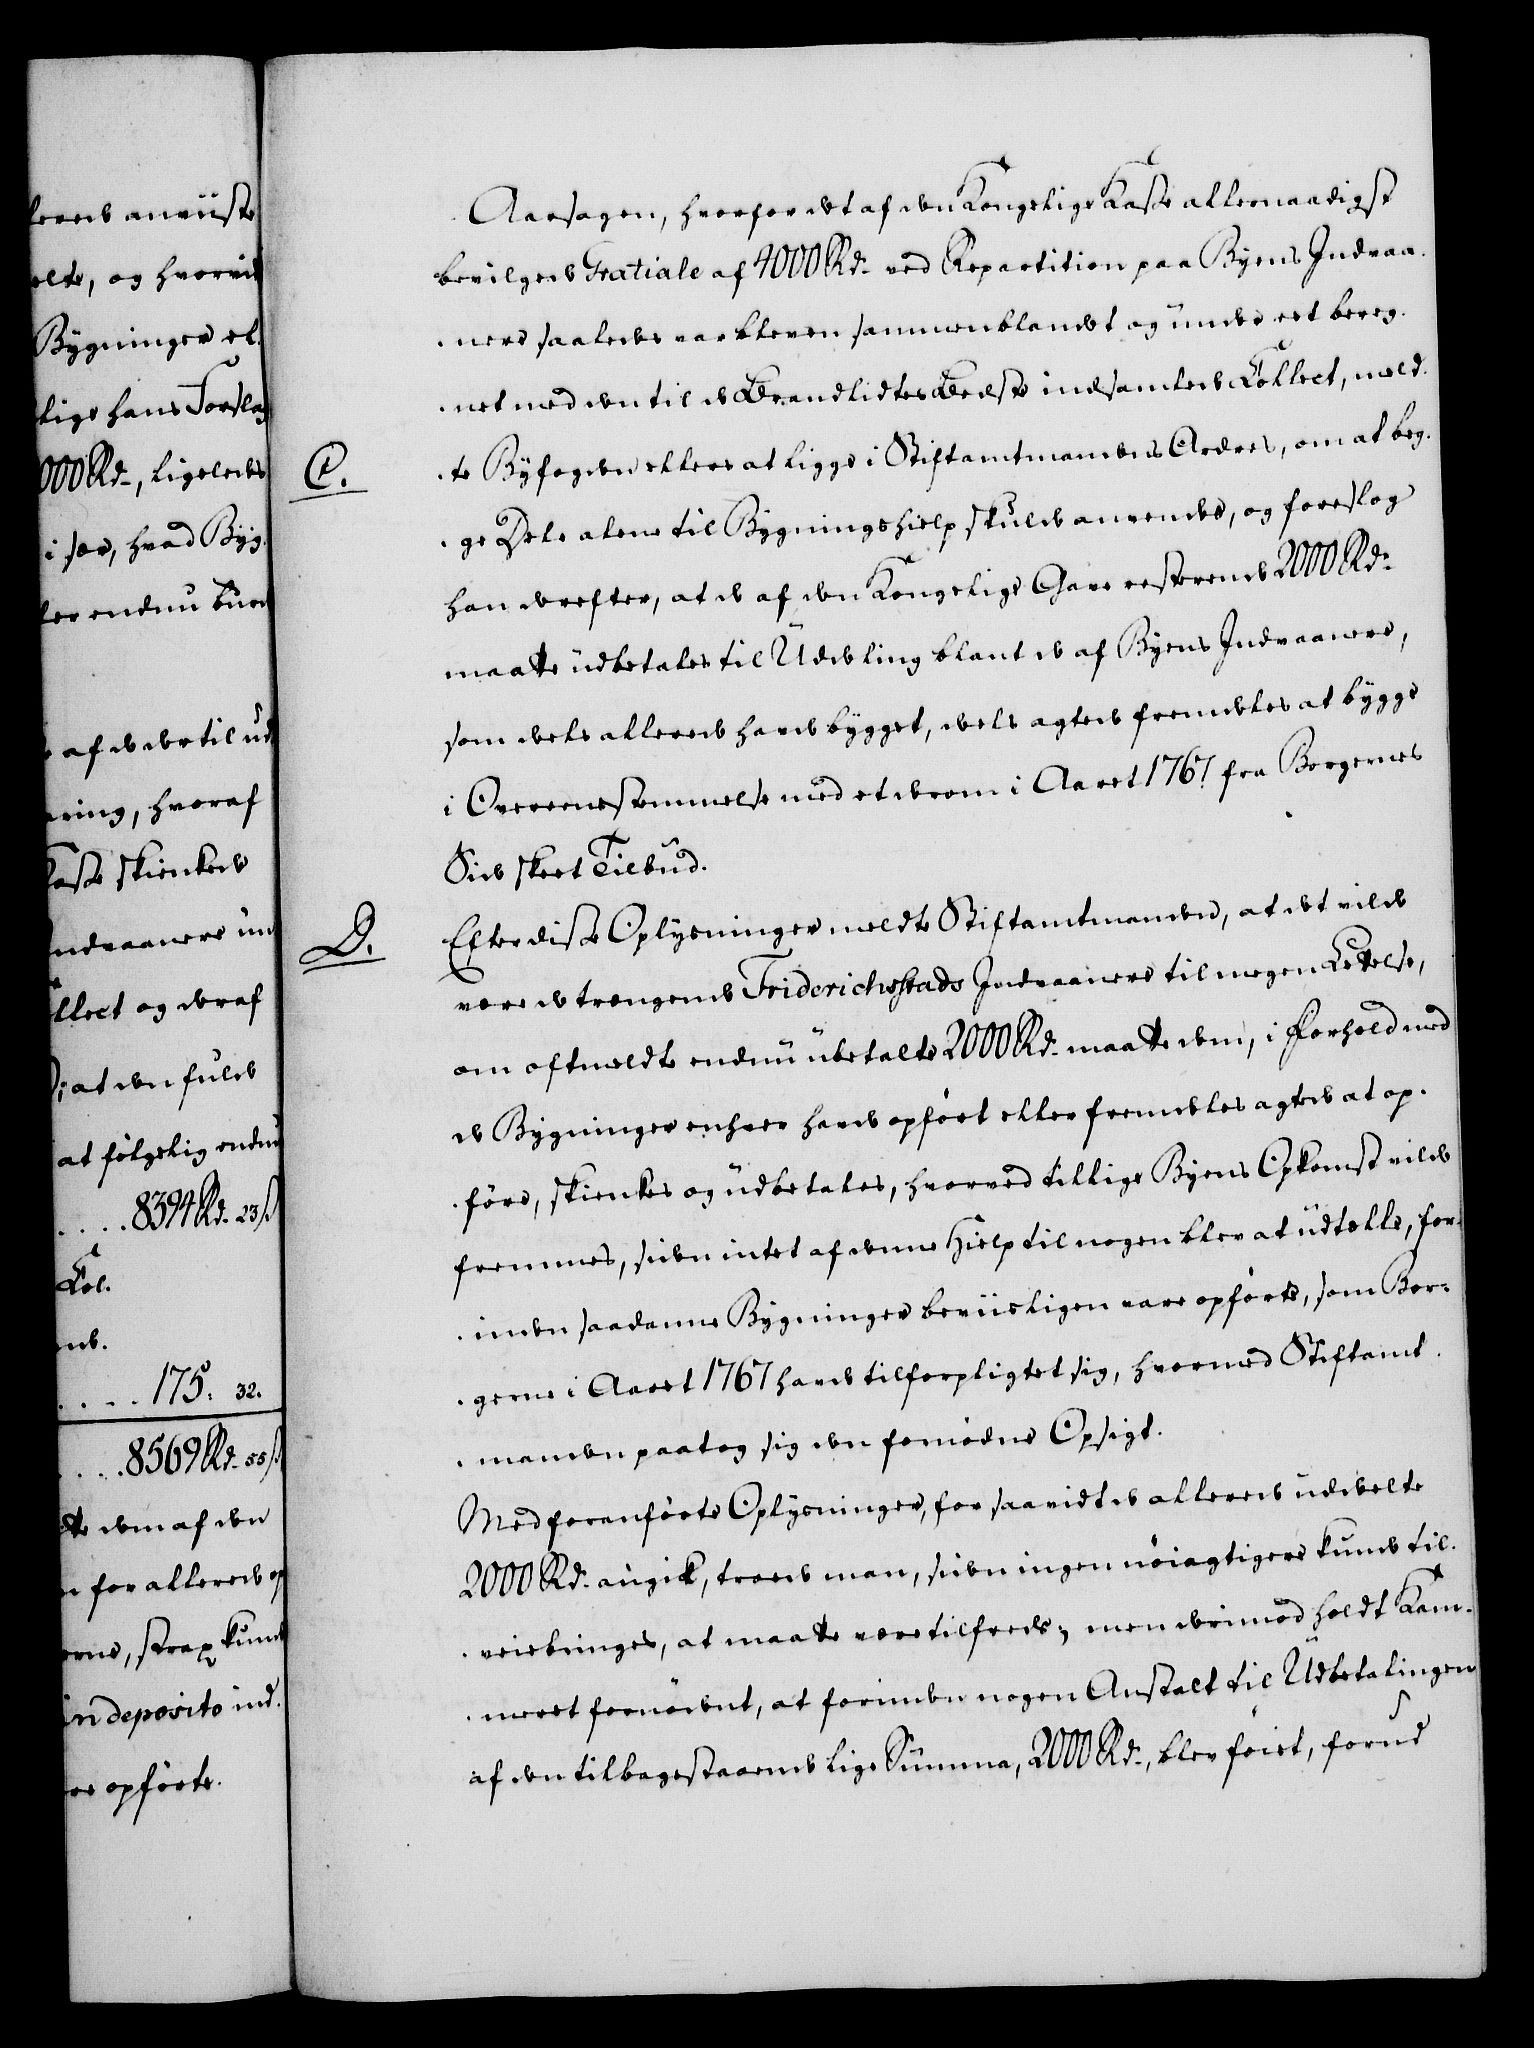 lerede anviiste
elte, og hvorvidt
Bygninger el.
lige hans Forslag
000 Rd., ligeledes
i sær, hvad Byg.
ler endnu burde
af de dertil ud
ring, hvoraf
Kasse skienkede
Indvaanere un
llect og deraf
; at den fulde
at følgelig endnu
.... 8394 Rd. 23 ß
Col.
nde.
.... 175. 32.
.... 8569 Rd. 55 ß
te dem af den
for allerede op
erne, strax kunde
in deposito ind.
re opførte.
Aarsagen, hvorfor det af den Kongelige Kasse allernaadigst
bevilgede Gratiale af 4000 Rd. ved Repartition paa Byens Indvaa-
nere saaledes var bleven sammenblandet og under eet bereg-
net med den til de Brandlidtes Bedste indsamlede Collect, meld-
C. te Byfogden ellers at ligge i Stiftamtmandens Ordres, om at beg-
ge Dele alene til Bygningshielp skulde anvendes, og foreslog
han derefter, at de af den Kongelige Gave resterende 2000 Rd.
maatte udbetales til Uddeling blant de af Byens Indvaanere,
som deels allerede havde bygget, deels agtede fremdeles at bygge
i Overeensstemmelse med et derom i Aaret 1767 fra Borgernes
Side skeet Tilbud.
D. Efter disse Oplysninger meldte Stiftamtmanden, at det vilde
være de trængende Friderichsstads Indvaanere til megen Lettelse,
om oftmeldte endnu ubetalte 2000 Rd. maatte dem, i Forhold med
de Bygninger enhver havde opført eller fremdeles agtede at op-
føre, skienkes og udbetales, hvorved tillige Byens Opkomst vilde
fremmes, siden intet af denne Hielp til nogen blev at udtælle, for-
inden saadanne Bygninger beviisligen vare opførte, som Bor-
gerne i Aaret 1767 havde tilforpligtet sig, hvormed Stiftamt-
manden paatog sig den fornødne Opsigt.
Med foranførte Oplysninger, for saavidt de allerede uddeelte
2000 Rd. angik, troede man, siden ingen nøiagtigere kunde til-
veiebringes, at maatte være tilfreds; men derimod holdt Kam-
meret fornødent, at forinden nogen Anstalt til Udbetalingen
af den tilbagestaaende lige Summa, 2000 Rd., blev føiet, forud